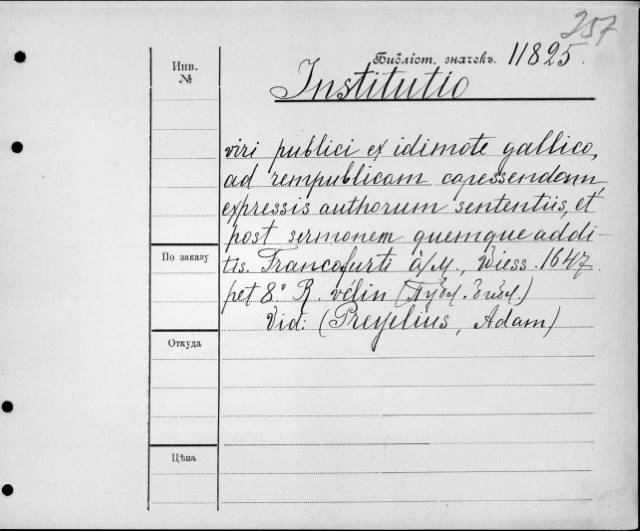 257
Инв. №
Библіот. значекъ. 11825.
Institutio
viri publici ex idimote gallico,
ad rempublicam capessendam,
expressis authorum sententiis, et
post sermonem quemque addi-
tis. Francofurti a/M., Wiess. 1647.
pet 8.° R. vélin
Vid: (Preyelius, Adam)
По заказу
Откуда
Цѣна